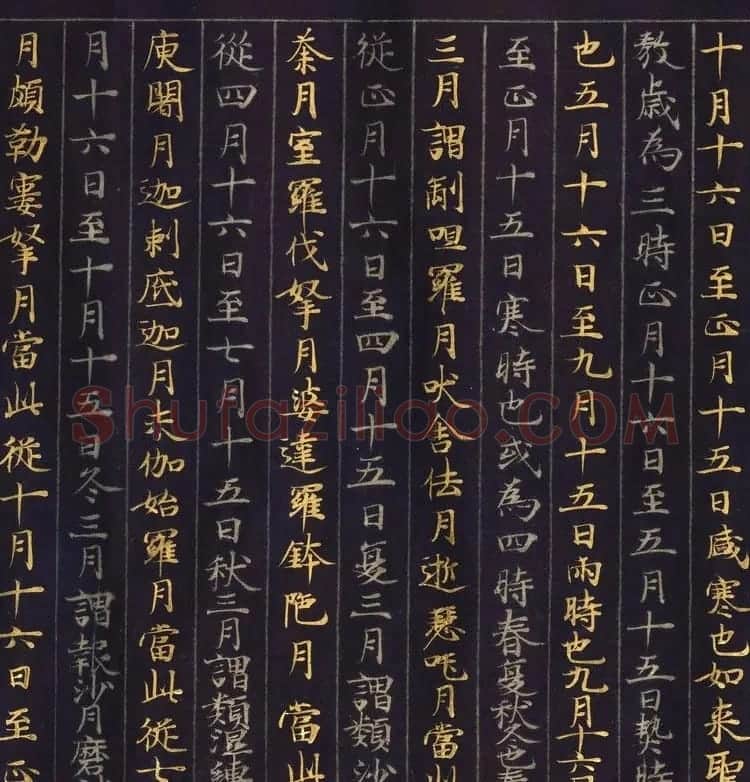 十月十六日至正月十五日盛寒也如来聖
教歲為三時正月十六日至五月十五日熱時
也五月十六日至九月十五日雨時也九月十六日
至正月十五日寒時也或為四時春夏秋冬也春
三月謂制呾羅月吠舍佉月逝瑟吒月當此
從正月十六日至四月十五日夏三月謂頞沙
荼月室羅伐拏月婆達羅鉢陁月當此
從四月十六日至七月十五日秋三月謂頞濕縛
庾闍月迦剌底迦月末伽始羅月當此從七
月十六日至十月十五日冬三月謂報沙月磨
月頗勒窶拏月當此從十月十六日至正
Shufaziliao.COM